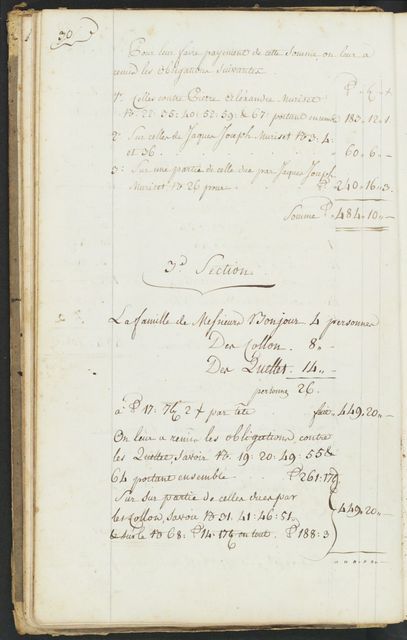 30
Pour leur faire payement de cette Somme, on leur a
remis les Obligations Suivantes.
1° Celles contre Pierre Alexandre Muriset
N° 22: 35: 40: 52: 59: & 67: portant ensemble 183. 12. 1
2: Sur celles de Jaques Joseph Muriset N° 3: 4.
et 36. 60. 6. —
3: Sur une partie de celle due par Jaques Joseph
Muriset N° 26 pour 240. 16. 3
Somme 484. 10. —
3.e Section
La famille de Messieurs Bonjour 4 personnes
Des Collon. 8 „
Des Quellet. 14 „
personnes 26.
à 17: 7 2 par tête fait 449. 20. —
On leur a remis les Obligations contre
les Quellet Savoir N° 19: 20: 49: 55 &
64 portant ensemble 261: 17
Sur partie de celles dues par
les Collon, Savoir N° 31: 41: 46: 51.
& sur le N° 68: 14: 17 en tout. 188: 3
449. 20. —